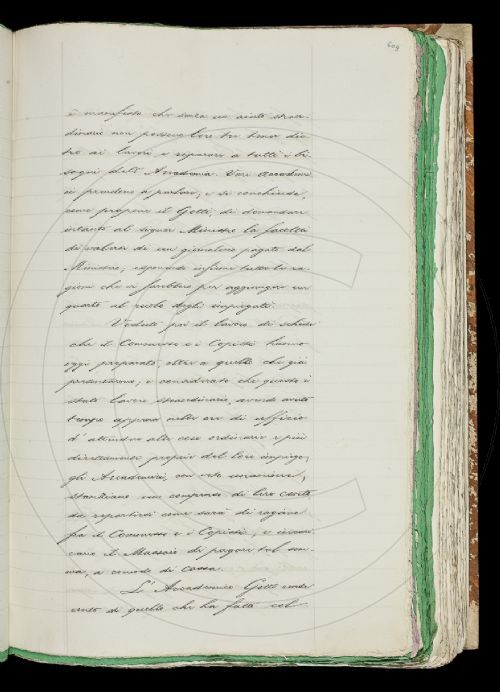 609
è manifesto che senza un aiuto straor-
dinario non possono loro tre tener die-
tro ai lavori e riparare a tutti i bi-
sogni dell'Accademia. Vari Accademi-
ci prendono a parlare, e si conchiude,
come propone il Gotti, di domandare
intanto al signor Ministro la facoltà
di valersi di un giornaliero pagato dal
Ministero, esponendo insieme tutte le ra-
gioni che ci sarebbero per aggiungere un
quarto al ruolo degli impiegati.
Veduto poi il lavoro di schede
che il Commesso e i Copisti hanno
oggi preparato, oltre a quello che già
presentarono, e considerato che questo è
stato lavoro straordinario, avendo avuto
troppo appena nelle ore di ufficio
d'attendere alle cose ordinarie e più
direttamente proprie del loro impiego,
gli Accademici, con voto unanime,
stanziano un compenso di lire cento
da repartirsi come sarà di ragione
fra il Commesso e i Copisti, e incari-
cano il Massaio di pagare tal som-
ma, a comodo di cassa.
L'Accademico Gotti rende
conto di quello che ha fatto col